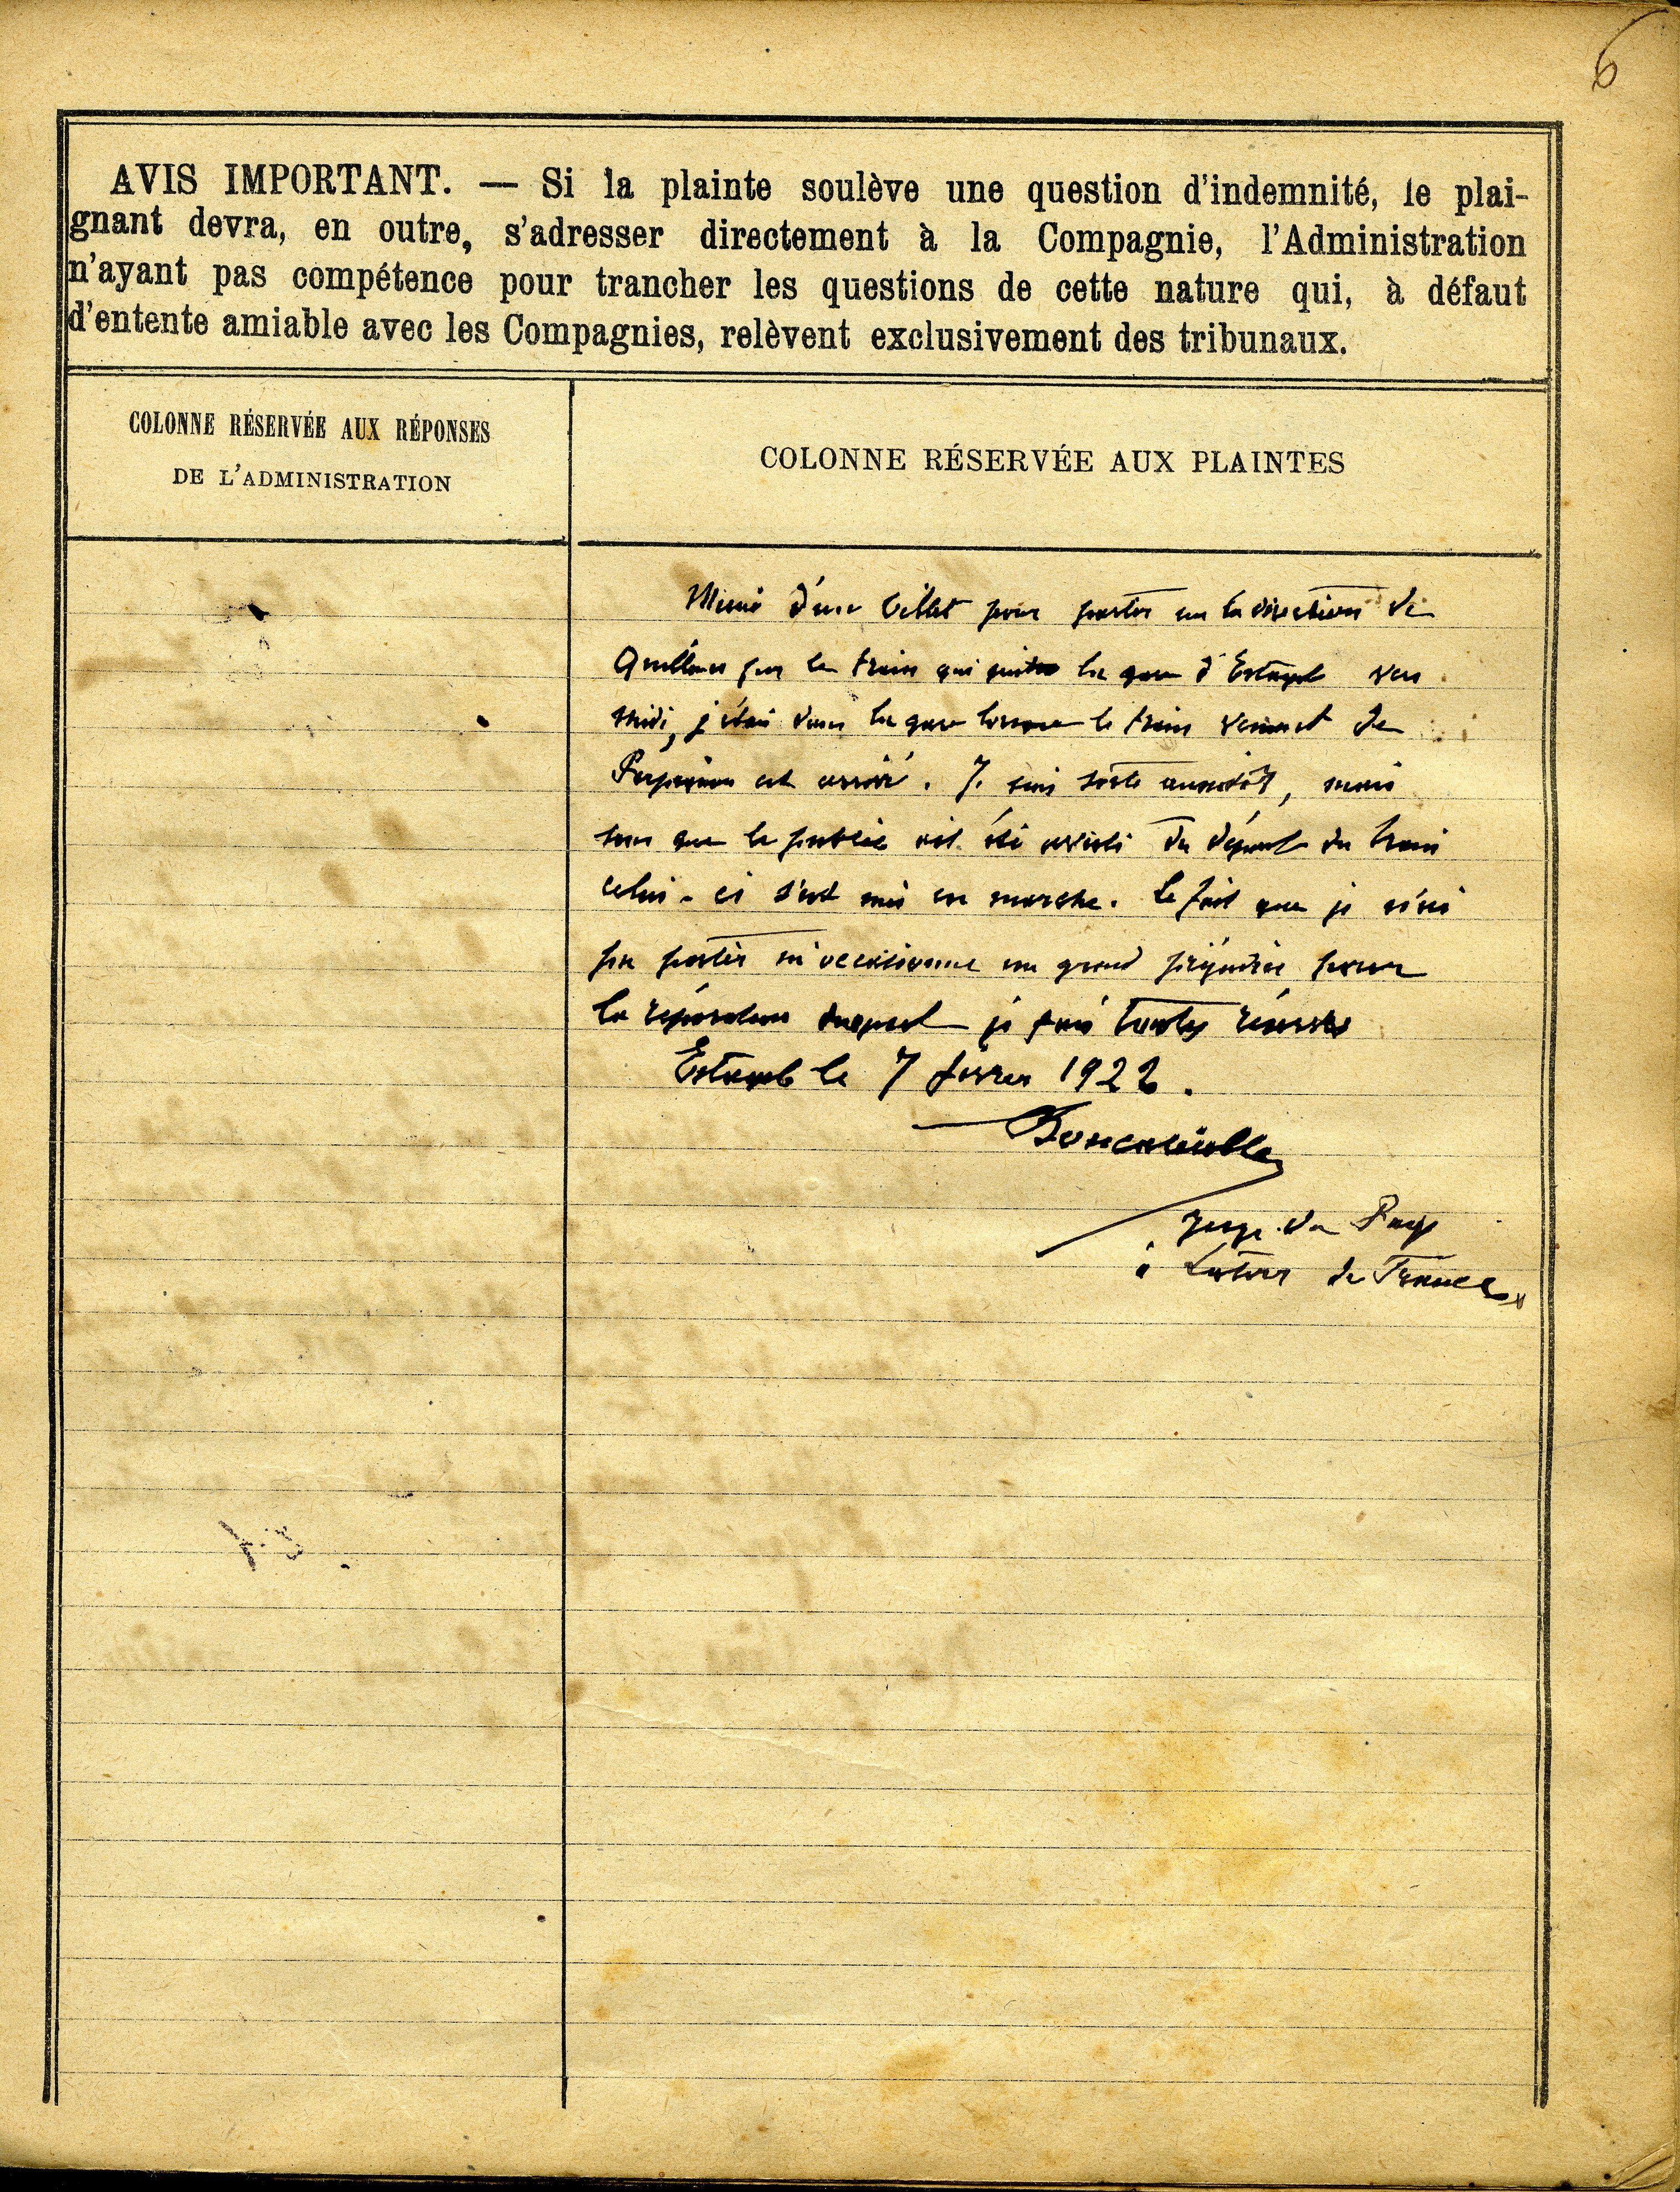 6
AVIS IMPORTANT. — Si la plainte soulève une question d'indemnité, le plai-
gnant devra, en outre, s'adresser directement à la Compagnie, l'Administration
n'ayant pas compétence pour trancher les questions de cette nature qui, à défaut
d'entente amiable avec les Compagnies, relèvent exclusivement des tribunaux.
COLONNE RÉSERVÉE AUX RÉPONSES
DE L'ADMINISTRATION
COLONNE RÉSERVÉE AUX PLAINTES
Muni d'un billet pour partir en la direction de
Quillan par le train qui quitte la gare d'Estagel vers
midi, j'étais dans la gare lorsque le train venant de
Perpignan est arrivé. Je suis sorti aussitôt, mais
sans que le public ait été averti du départ du train
celui-ci s'est mis en marche. Le fait que je n'ai
pu partir m'occasionne un grand préjudice pour
la réparation duquel je fais toutes réserves
Estagel le 7 février 1922.
juge de Paix
à Latour de France